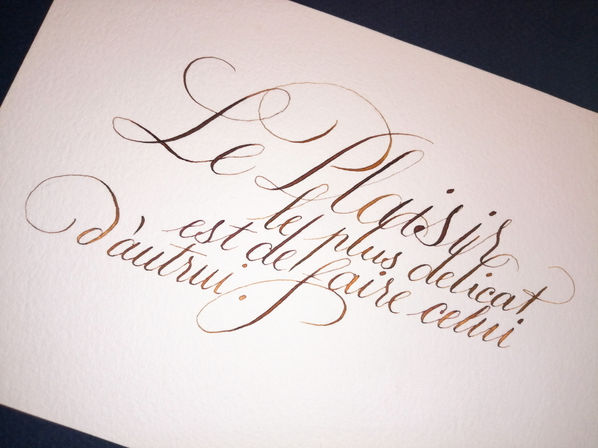 Le Plaisir
le plus delicat
est de faire celui
d'autrui.